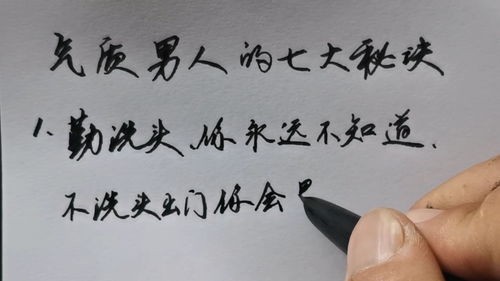 气质男人的七大秘诀
1、勤洗头、你永远不知道、
不洗头出门你会